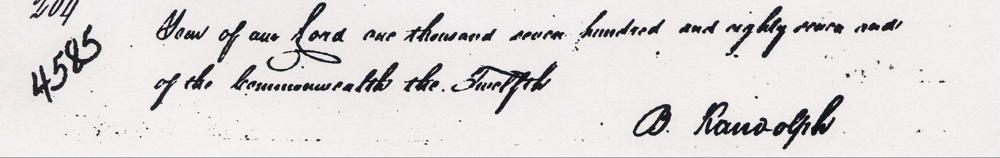 204
4585
Year of our Lord one thousand seven hundred and eighty seven and
of the Commonwealth the Twelfth
B. Randolph